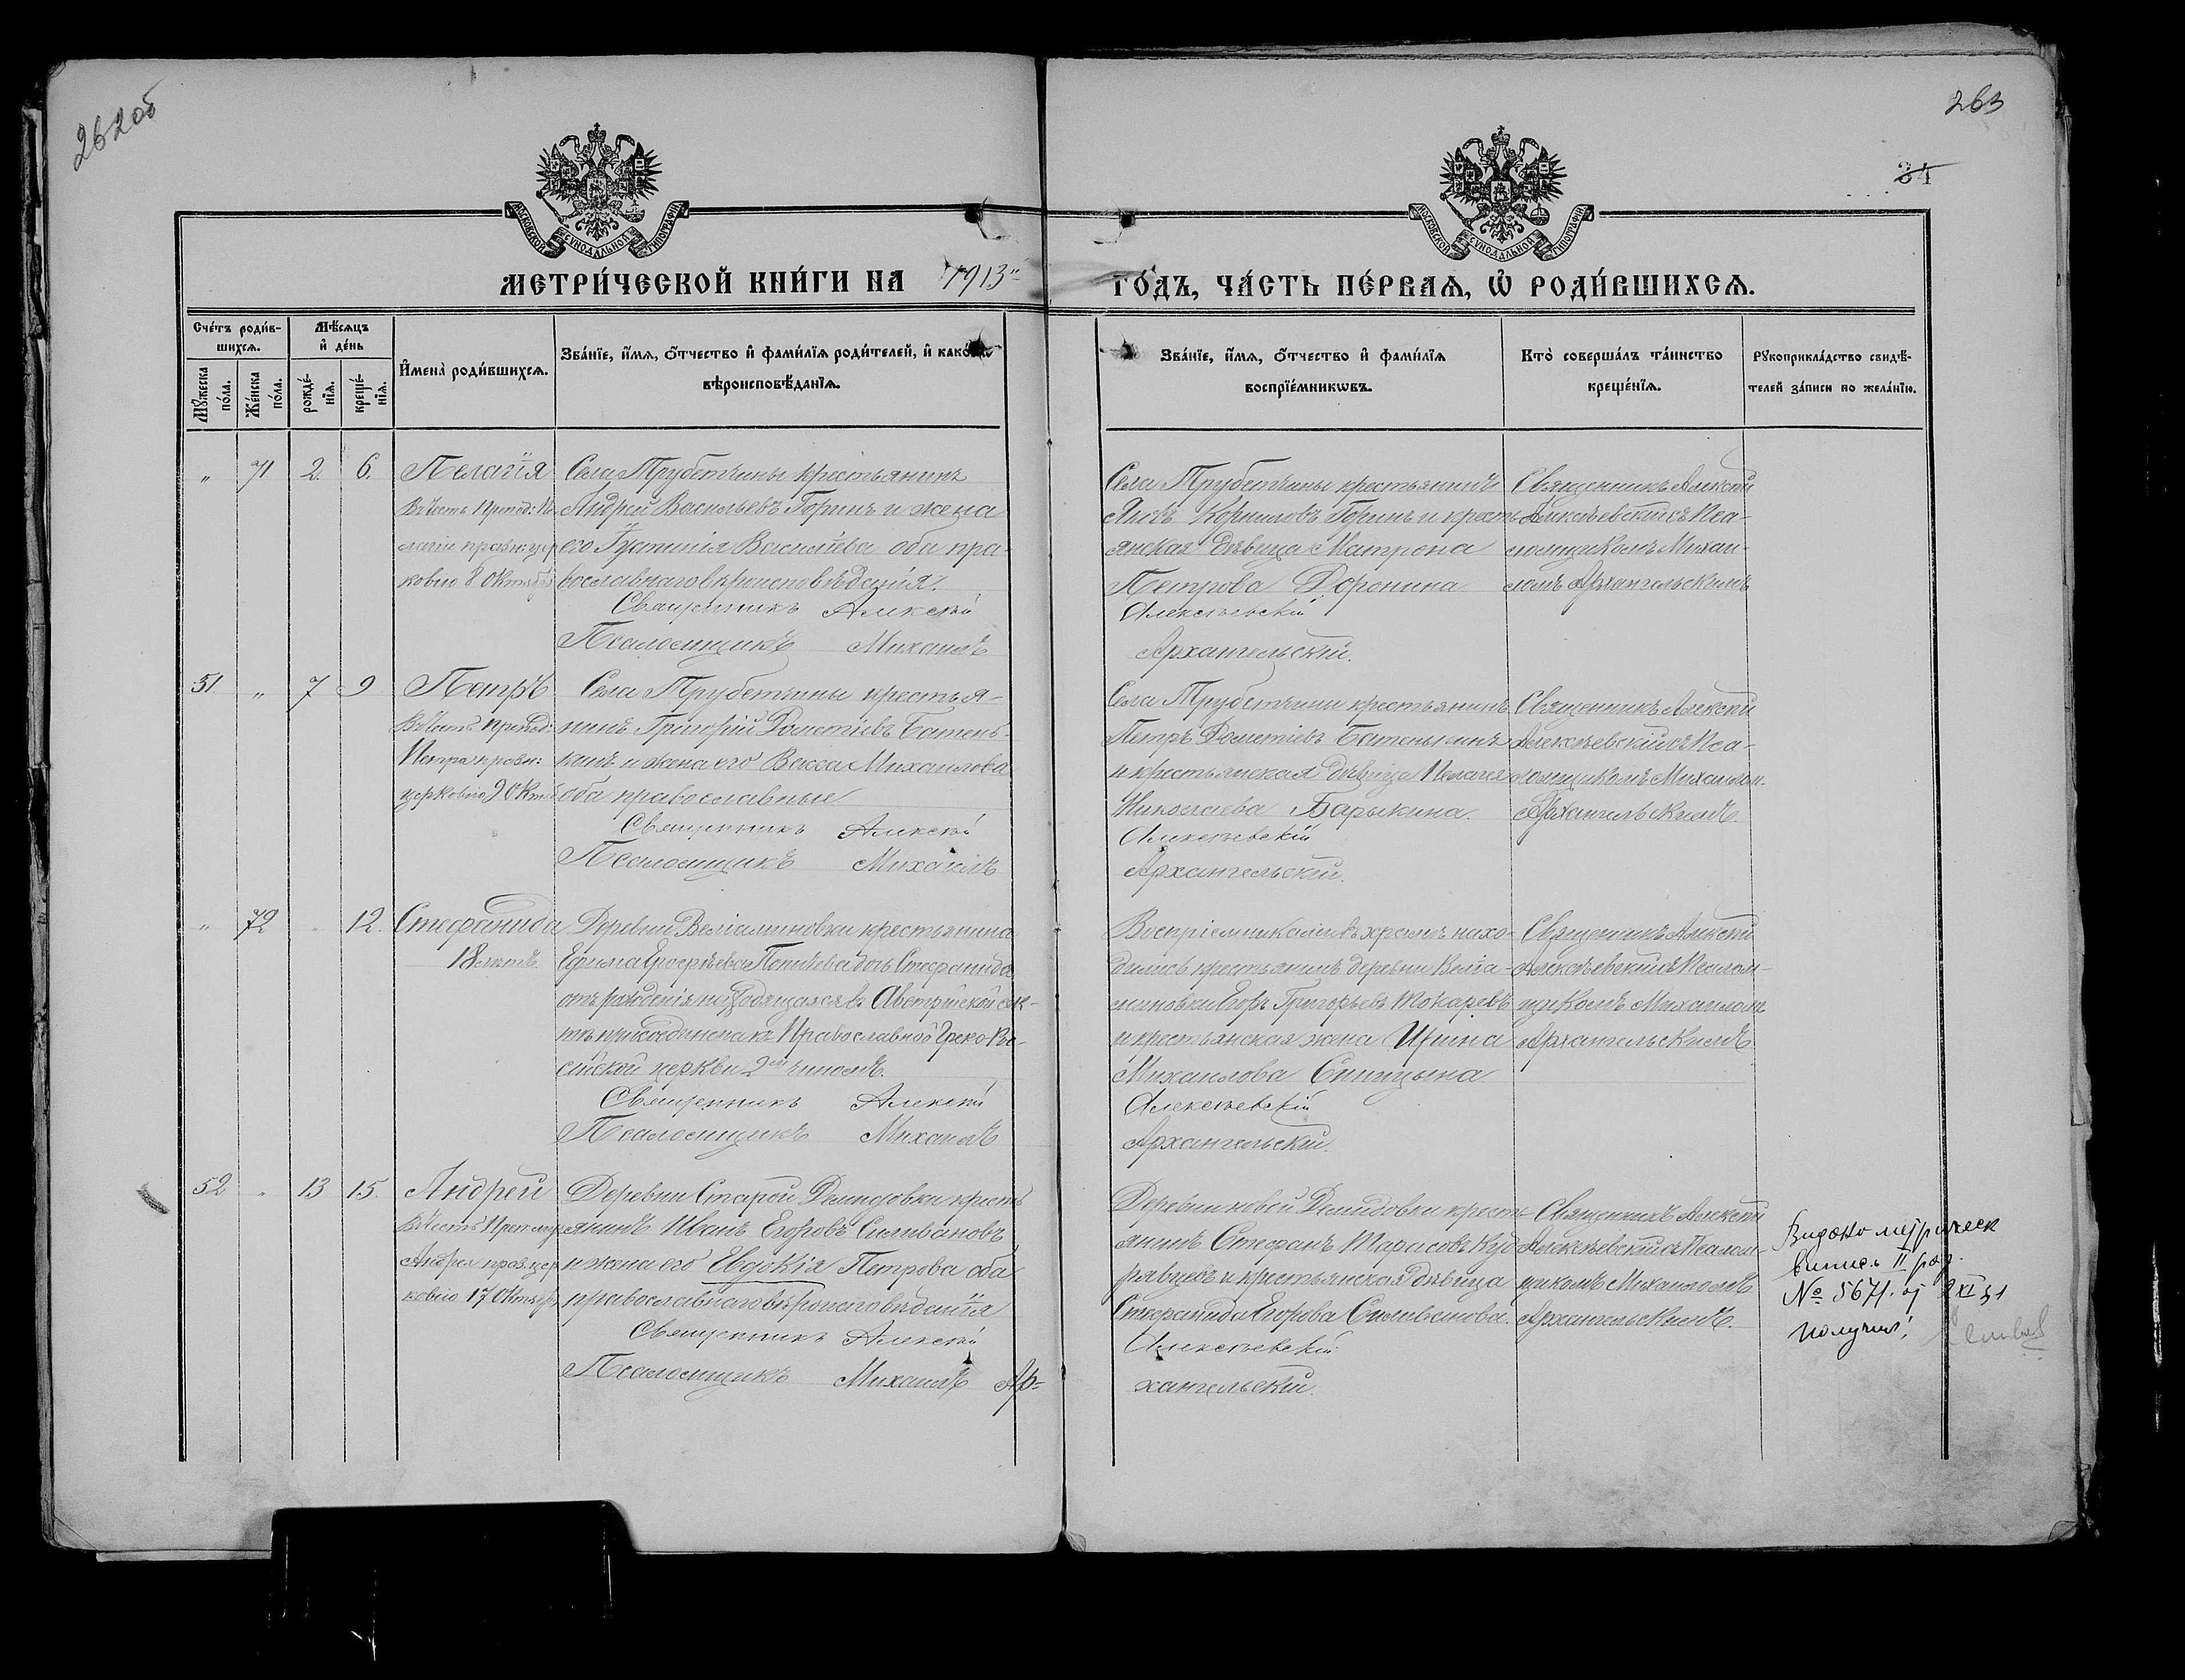 262об
263
34
МОСКОВСКОЙ СУНОДАЛЬНОЙ ТИПОГРАФІИ
МОСКОВСКОЙ СУНОДАЛЬНОЙ ТИПОГРАФІИ
МЕТРИ́ЧЕСКОЙ КНИ́ГИ НА 1913й ГО́ДЪ, ЧА́СТЬ ПЕ́РВАѦ, Ѡ҆ РОДИ́ВШИХСѦ.
Сче́тъ роди́в-
шихсѧ.
Мѣ́сѧцъ
и҆ де́нь
Мꙋ́жеска по́ла.
Же́нска по́ла.
рожде́-нїѧ.
креще́-нїѧ.
И҆мена̀ роди́вшихсѧ.
Зва́нїе, и҆́мѧ, ѻ҆́тчество и҆ фами́лїѧ роди́телей, и҆ како́гѡ
вѣроисповѣ́данїѧ.
Зва́нїе, и҆́мѧ, ѻ҆́тчество и҆ фами́лїѧ
воспрїе́мникѡвъ.
Кто̀ соверша́лъ та́инство
креще́нїѧ.
Рꙋкоприкла́дство свидѣ́-
телей за́писи по жела́нїю.
" 71. 2. 6. Пелагія
Въ честь Препод: Пе-
лагіи празн: цер
ковію 8 Октября
Села Трубетчины крестьянинъ
Андрей Васильевъ Горинъ и жена
его Іустинія Васильева оба пра-
вославнаго вѣроисповѣданія.
Священникъ Алексій
Псаломщикъ Михаилъ
Села Трубетчины крестьянинъ
Яковъ Корниловъ Горинъ и кресть
янская дѣвица Матрона
Петрова Доронина
Алексѣевскій
Архангельскій.
Священникъ Алексій
Алексѣевскій съ Пса-
ломщикомъ Михаи-
ломъ Архангельскимъ
51. " 7 9 Петръ
Въ честь препод:
Петра празн:
церковію 9 Октяб
Села Трубетчины крестья-
нинъ Григорій Дометіевъ Батень-
кинъ и жена его Васса Михаилова
оба православные.
Священникъ Алексій
Псаломщикъ Михаилъ
Села Трубетчины крестьянинъ
Петръ Дометіевъ Батенькинъ
и крестьянская дѣвица Пелагея
Николаева Барыкина.
Алексѣевскій
Архангельскій.
Священникъ Алексій
Алексѣевскій съ Пса-
ломщикомъ Михаилом.
Архангельскимъ.
" 72 " 12. Стефанида
18 лѣтъ
Деревни Веліаминовки крестьянина
Ефима дочь Стефанида
отъ рожденія находящаяся въ Австрійской сек-
тѣ присоединена къ Православной Греко-Рос-
сійской церкви 2мъ чиномъ.
Священникъ Алексій
Псаломщикъ Михаилъ
Воспріемниками въ храмѣ нахо-
дились крестьянинъ деревни Веліа-
миновки Егоръ Григорьевъ Токаревъ
и крестьянская жена Ирина
Михаилова Синицына
Алексѣевскій
Архангельскій.
Священникъ Алексій
Алексѣевскій съ Псалом-
щикомъ Михаиломъ
Архангельскимъ
52 " 13 15. Андрей
Въ честь Препмуч
Андрея праз. цер
ковію 17 Октября
Деревни Старой Демидовки кресть
янинъ Иванъ Егоровъ Силивановъ
и жена его Евдокія Петрова оба
православнаго вѣроисповѣданія
Священникъ Алексій
Псаломщикъ Михаилъ Ар=
Деревни новой Демидовки кресть-
янинъ Стефанъ Тарасовъ Куд
рявцевъ и крестьянская дѣвица
Стефанида Егорова Силиванова.
Алексѣевскій
хангельскій.
Священникъ Алексій
Алексѣевскій съ Псалом-
щикомъ Михаиломъ
Архангельскимъ.
Выдано метрическ
выпись II раз.
№ 5671
получил